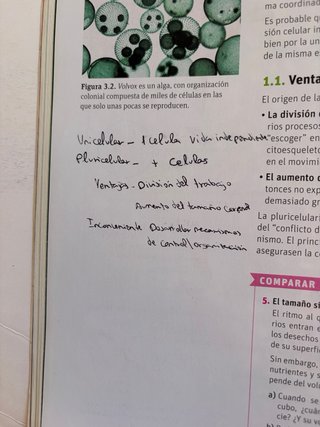 Figura 3.2. Volvox es un alga, con organización
colonial compuesta de miles de células en las
que solo unas pocas se reproducen.
Unicelular - 1 celula vida independiente
Pluricelular - + celulas
Ventajas - División del trabajo
Aumento del tamaño corporal
Inconveniente Desarrollar mecanismos
de control/organización
ma coordinad
Es probable q
sión celular in
bien por la un
de la misma e
1.1. Venta
El origen de la
• La división d
rios procesos
"escoger" en
citoesqueleto
en el movimi
• El aumento d
tonces no exp
demasiado gr
La pluricelulari
del "conflicto d
nismo. El princ
asegurasen la co
COMPARAR
5. El tamaño sí
El ritmo al q
rios entran e
los desechos
de su superfi
Sin embargo,
nutrientes y s
pende del volu
a) Cuando se
cubo, ¿cuán
cie? ¿Y su vo